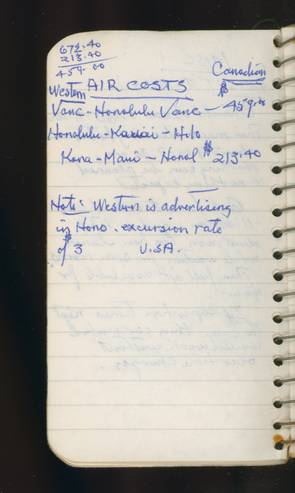 672.40
213.40
459.00
Canadian
Western AIR COSTS $
Vanc-Honolulu Vanc - 459.00
Honolulu-Kauai - Hilo
Kona-Maui - Honol $213.40
Note: Western is advertising
in Hono. excursion rate
of 3 U.S.A.